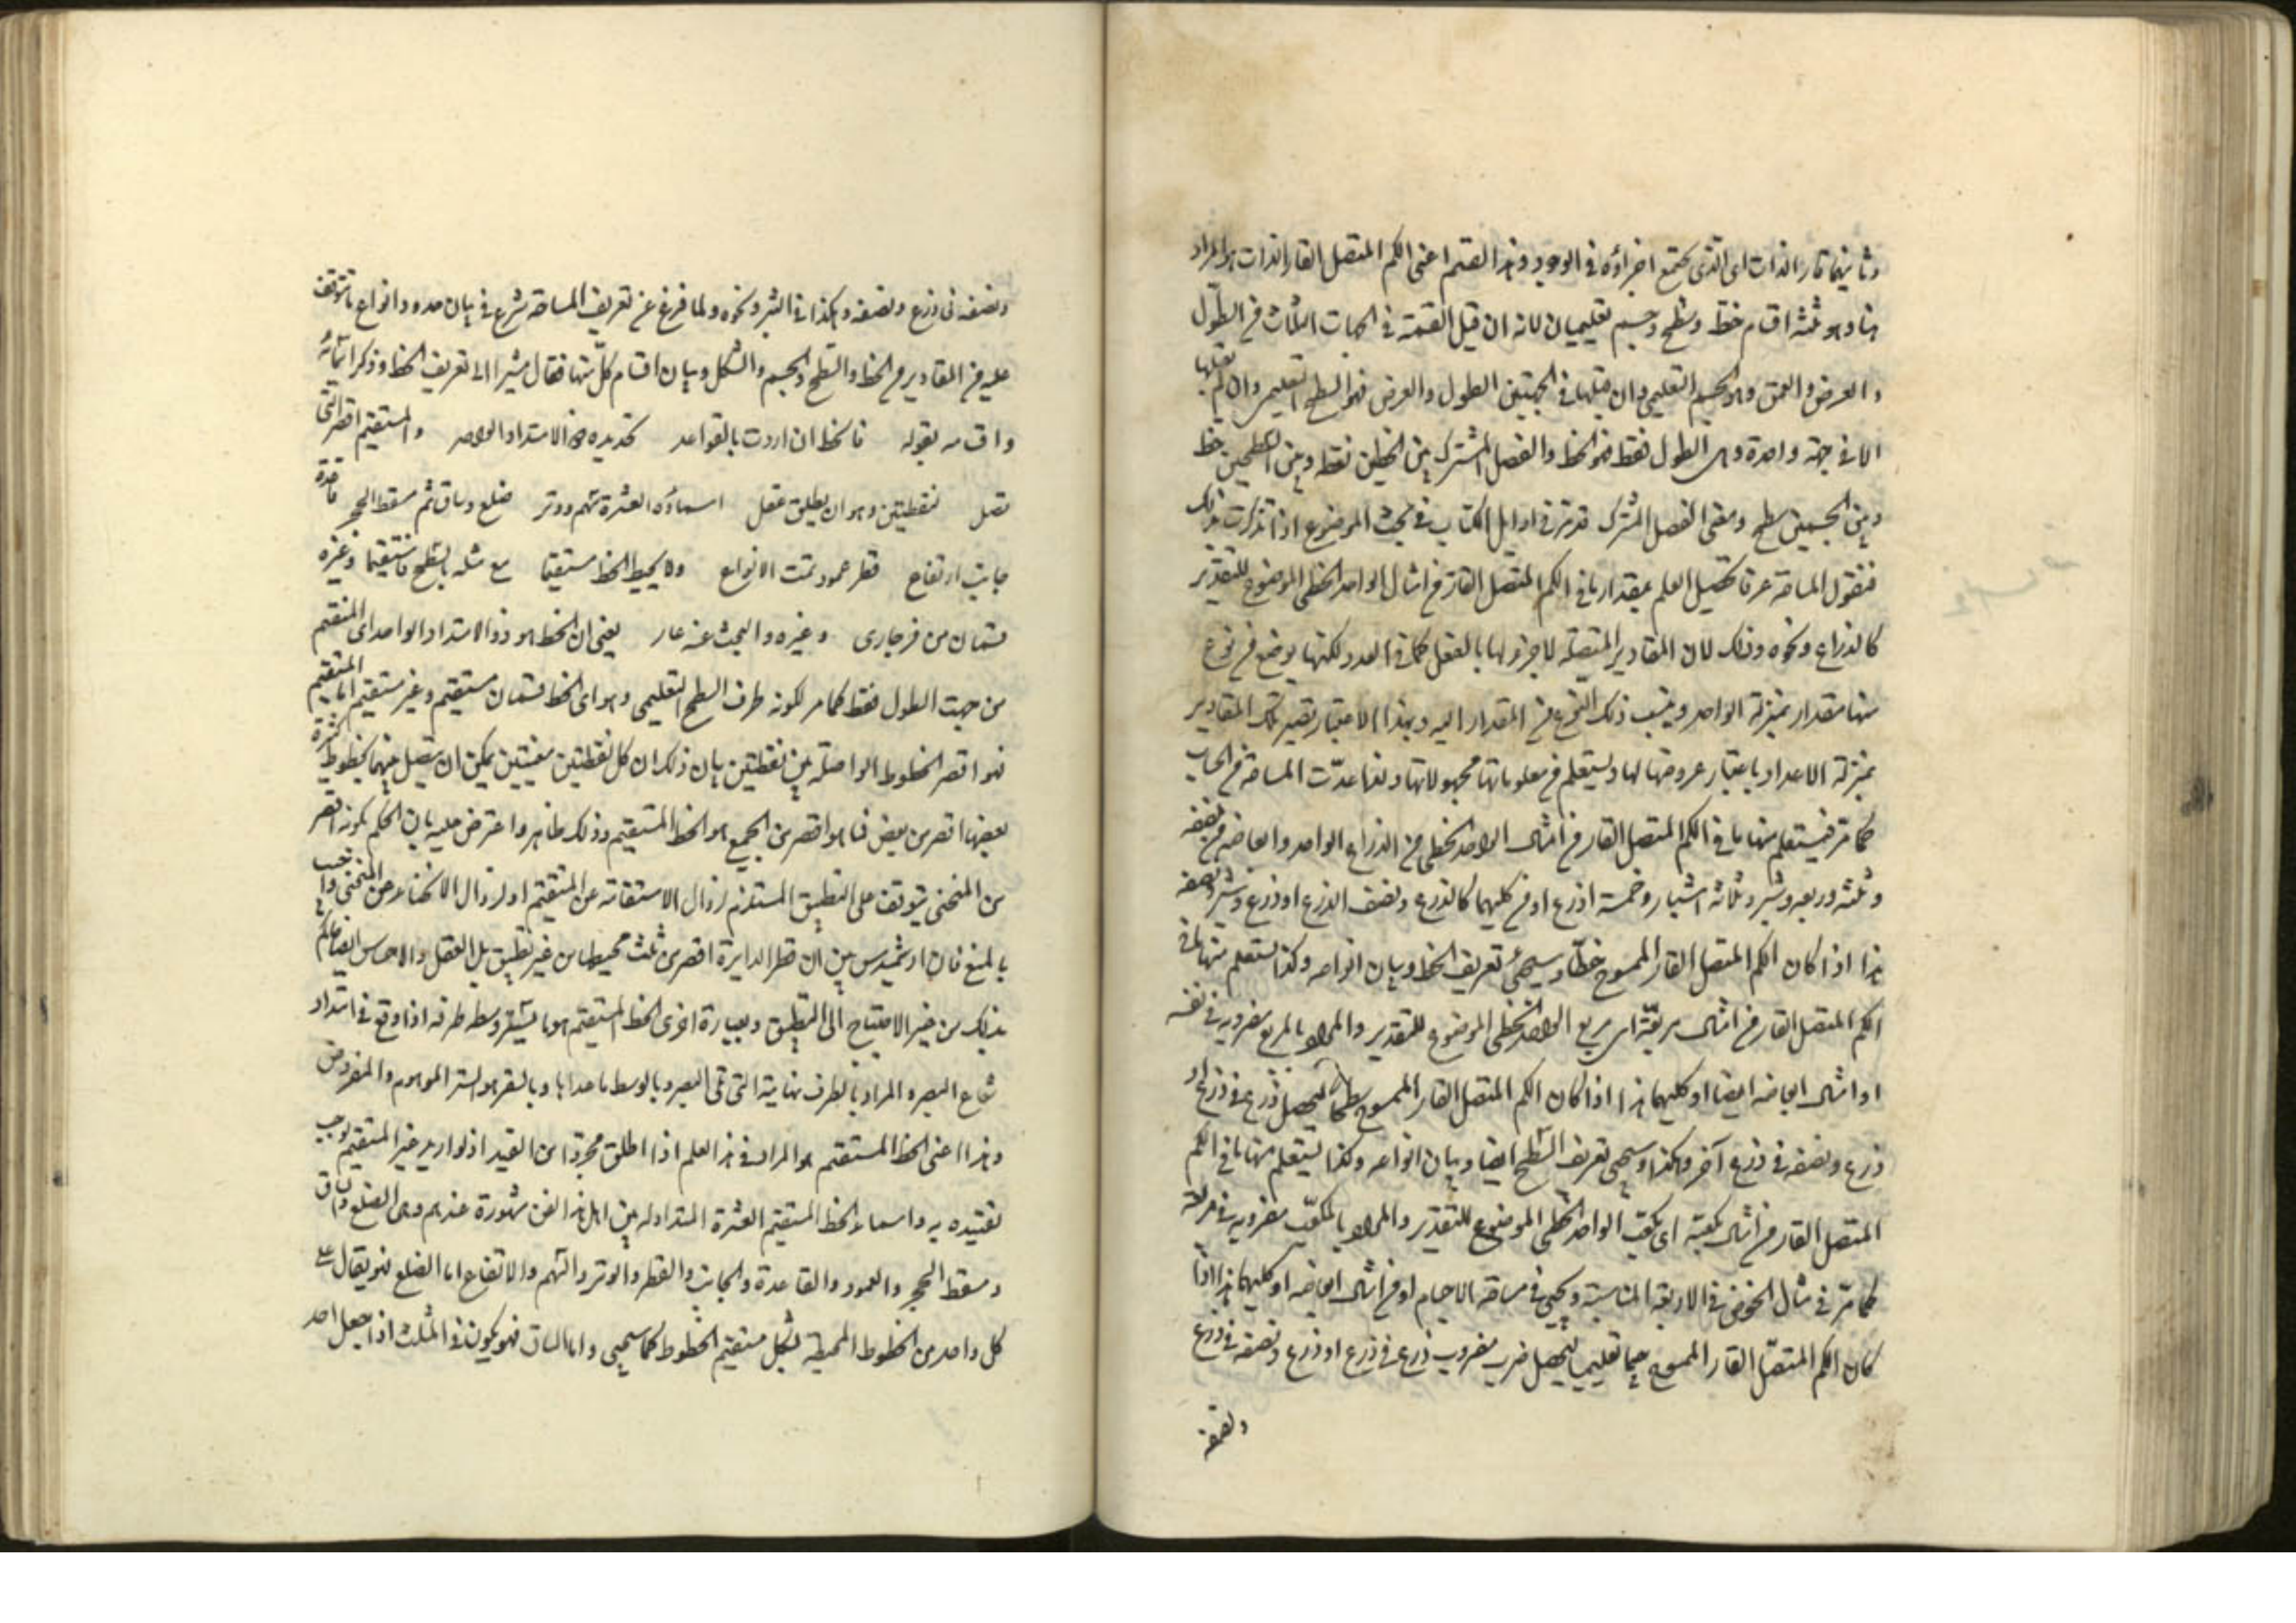 وثانيهما قار الذات اى الذى يجتمع اجزاؤه فى الوجود وهذا القسم اعنى الكم المتصل القار الذات هو المراد
هنا وهو ثلثة اقسام خط وسطح وجسم تعليميان لانه ان قبل القسمة فى الجهات الثلاث من الطول
والعرض والعمق وهو الجسم التعليمى وان قبلها فى الجهتين الطول والعرض فهو السطح التعليمى وان لم يقبلها
الا فى جهة واحدة وهى الطول فقط فهو الخط والفصل المشترك بين الخطين نقطة وبين السطحين خط
وبين الجسمين سطح ومعنى الفصل المشترك قد مر فى اوايل الكتاب فى بحث الموضوع اذا تذكرت ذلك
فنقول المساحة عرفا تحصيل العلم بمقدار ما فى الكم المتصل القار من امثال الواحد الخطى الموضوع للتقدير
كالذراع ونحوه وذلك لان المقادير المتصلة لا جزء لها بالفعل كما فى العدد لكنها يوضع من نوع
منها مقدار بمنزلة الواحد وينسب ذلك النوع من المقدار اليه وبهذا الاعتبار تصير تلك المقادير
بمنزلة الاعداد باعتبار عروضها لها ويستعلم من معلوماتها مجهولاتها ولذا عدّت المساحة من الحساب
كما مر فيستعلم منها ما فى الكم المتصل القار من امثال الواحد الخطى من الذراع الواحد وابعاضه من نصفه
وثلثه وربعه وشبر وثلاثة اشبار وخمسة اذرع او من كليهما كالذرع ونصف الذرع او ذرع وشبر ونصفه
هذا اذا كان الكم المتصل القار الممسوح خطّا وسيجئ تعريف الخط وبيان انواعه وكذا يستعلم منها ما فى
الكم المتصل القار من امثال مربعه اى مربع الواحد الخطى الموضوع للتقدير والمراد بالمربع مضروبه فى نفسه
او امثال ابعاضه ايضا او كليهما هذا اذا كان الكم المتصل القار الممسوح سطحا ليحصل ذرع فى ذرع او
ذرع ونصفه فى ذرع آخر وهكذا وسيجئ تعريف السطح ايضا وبيان انواعه وكذا يستعلم منها ما فى الكم
المتصل القار من امثال مكعبه اى مكعب الواحد الخطى الموضوع للتقدير والمراد بالمكعب مضروبه فى مربعه
كما مرّ فى مثال الحوض فى الاربعة المتناسبة ويجئ فى مساحة الاجسام او من امثال ابعاضه او كليهما هذا اذا
كان الكم المتصل القار الممسوح جسما تعليميا ليحصل ضرب مضروب ذرع فى ذرع او ذرع ونصفه فى ذرع
ونصفه
ونصفه فى ذرع ونصفه وهكذا فى الشبر ونحوه ولما فرغ عن تعريف المساحة شرع فى بيان حده وانواع ما يتوقف
عليه من المقادير من الخط والسطح والجسم والشكل وبيان اقسام كلّ منها فقال مشيرا الى تعريف الخط وذكر اسمائه
واقسامه بقوله فالخط ان اردت بالقواعد تحديده ذو الامتداد الواحد والمستقيم اقصر التى
تصل نقطتين وهو ان يطلق عقل اسماؤه العشرة سهم ووتر ضلع وساق ثم مسقط الحجر قاعدة
جانب ارتفاع قطر عمود تمت الانواع ولا يحيط الخط مستقيما مع مثله بالسطح مستقيما وغيره
قسمان من فرجارى وغيره والبحث عنه عار يعنى ان الخط هو ذو الامتداد الواحد اى المنقسم
من جهت الطول فقط كما مر لكونه طرف السطح التعليمى وهو اى الخط قسمان مستقيم وغير مستقيم اما المستقيم
فهو اقصر الخطوط الواصلة بين نقطتين بيان ذلك ان كل نقطتين معينتين يمكن ان يتصل بينهما بخطوط كثيرة
بعضها اقصر من بعض فما هو اقصر من الجميع هو الخط المستقيم وذلك ظاهر واعترض عليه بان الحكم بكونه اقصر
من المنحنى يتوقف على التطبيق المستلزم لزوال الاستقامة عن المستقيم او لزوال الانحناء عن المنحنى واجيب
بالمنع فان ارشميدس بين ان قطر الدايرة اقصر من ثلث محيطها من غير تطبيق بل العقل والاحساس ايضا يحكم
بذلك من غير الاحتياج الى التطبيق وبعبارة اخرى الخط المستقيم هو ما يستر وسطه طرفه اذا وقع فى امتداد
شعاع البصر والمراد بالطرف نهايته التى تلى البصر وبالوسط ما عداها وبالستر هو الستر الموهوم والمفروض
وهذا اعنى الخط المستقيم هو المراد فى هذا العلم اذا اطلق مجردا من القيد اذ لو اريد غير المستقيم لوجب
تقييده به واسماء الخط المستقيم العشرة المتداولة بين اهل هذا الفن مشهورة عندهم وهى الضلع والساق
ومسقط الحجر والعمود والقاعدة والجانب والقطر والوتر والسهم والارتفاع اما الضلع فهو يقال على
كل واحد من الخطوط المحيطة بشكل مستقيم الخطوط كما سيجئ واما الساق فهو يكون فى المثلث اذا جعل احد